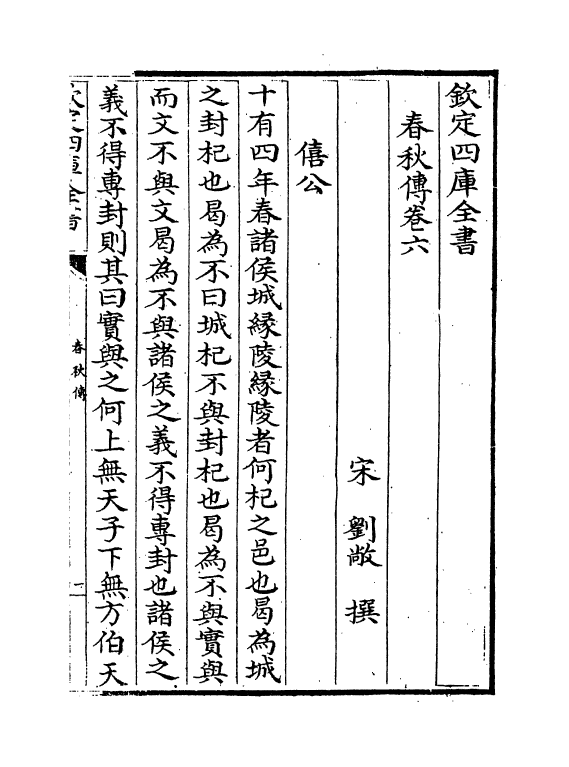 欽定四庫全書
春秋傳卷六
宋 劉敞 撰
僖公
十有四年春諸侯城緣陵緣陵者何杞之邑也曷為城
之封杞也曷為不曰城杞不與封杞也曷為不與實與
而文不與文曷為不與諸侯之義不得專封也諸侯之
義不得專封則其曰實與之何上無天子下無方伯天
欽定四庫全書
春秋傳
一